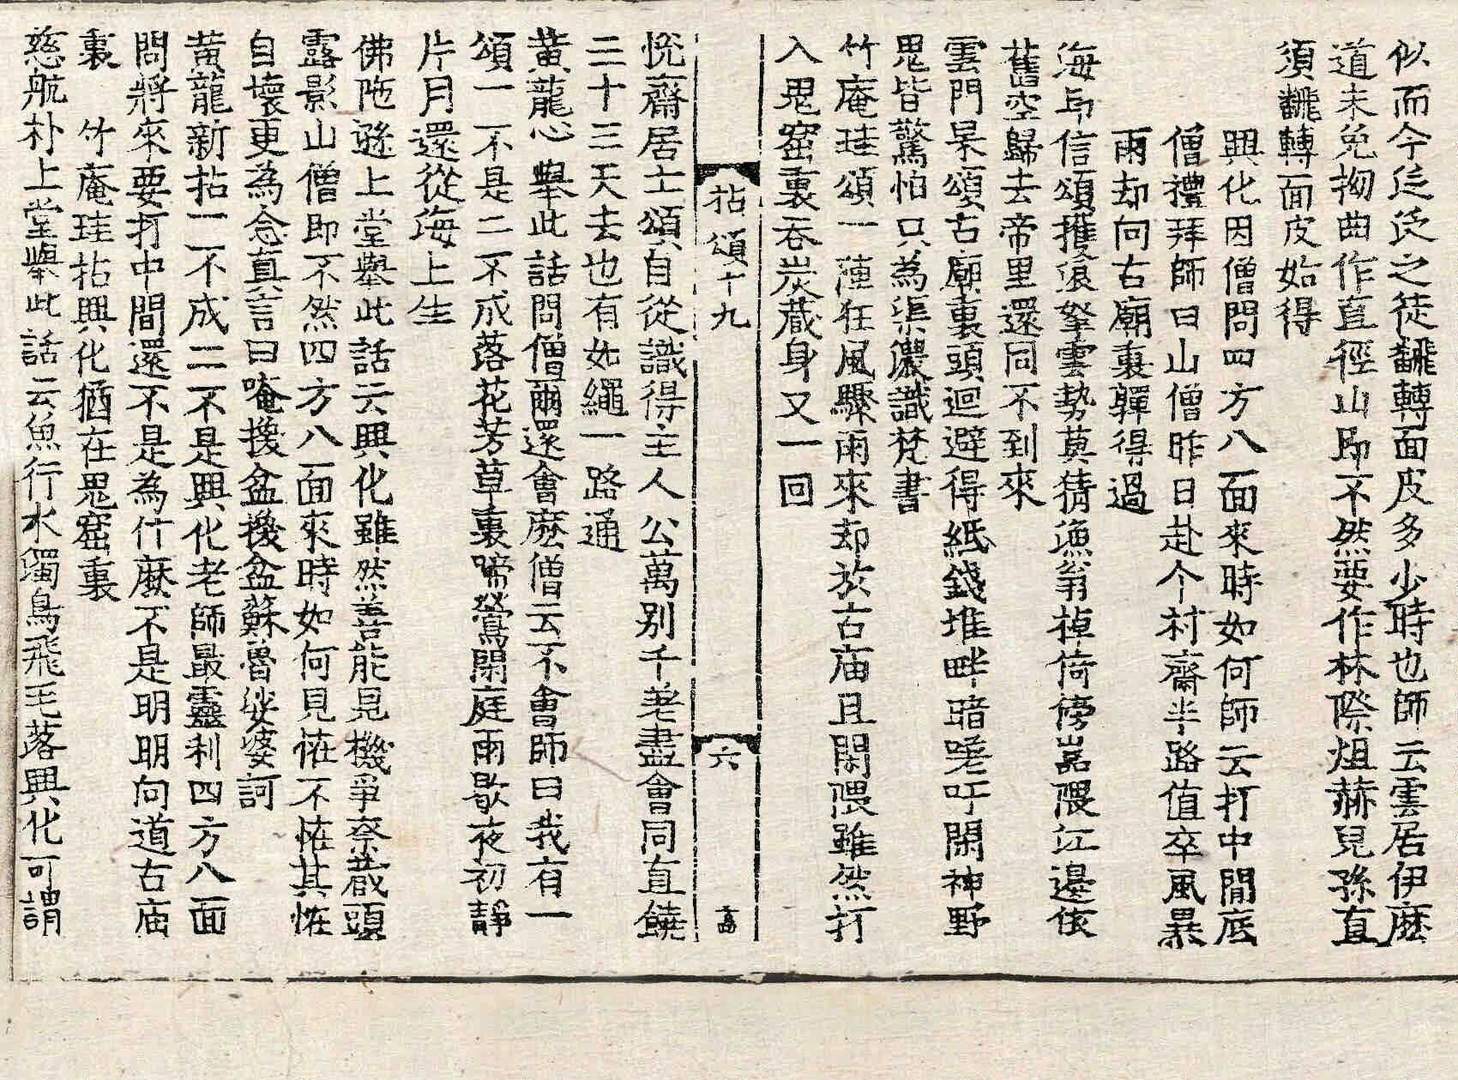 似而今泛泛之徒飜轉面皮多少時也師云雲居伊麽
道未免拗曲作直徑山即不然要作林際爼赫兒孫直
須飜轉面皮始得
興化因僧問四方八面來時如何師云打中間底
僧禮拜師曰山僧昨日赴个村齋半路值卒風暴
雨却向古廟裏軃得過
海印信頌擭浪拏雲勢莫猜漁翁棹倚傍嵓隈江邊依
舊空歸去帝里還同不到來
雲門杲頌古廟裏頭迴避得紙錢堆畔暗嗟吁閑神野
鬼皆驚怕只為渠儂識梵書
竹庵珪頌一陣狂風驟雨來却放古庙且閑隈雖然打
入鬼窟裏吞炭蔵身又一回
拈頌十九
六
悅齋居士頌自從識得主人公萬別千差盡會同直饒
三十三天去也有如繩一路通
黃龍心擧此話問僧爾還會麽僧云不會師曰我有一
頌一不是二不成落花芳草裏啼鶯閑庭雨歇夜初靜
片月還從海上生
佛陁遜上堂擧此話云興化雖然善能見機爭柰蔵頭
露影山僧即不然四方八面來時如何見恠不恠其恠
自壞更為念真言曰唵㨪盆㨪盆蘇魯娑婆訶
黃龍新拈一不成二不是興化老師最靈利四方八面
問將來要打中間還不是為什麽不是明明向道古庙
裏　竹庵珪拈興化猶在鬼窟裏
慈航朴上堂擧此話云魚行水濁鳥飛毛落興化可謂